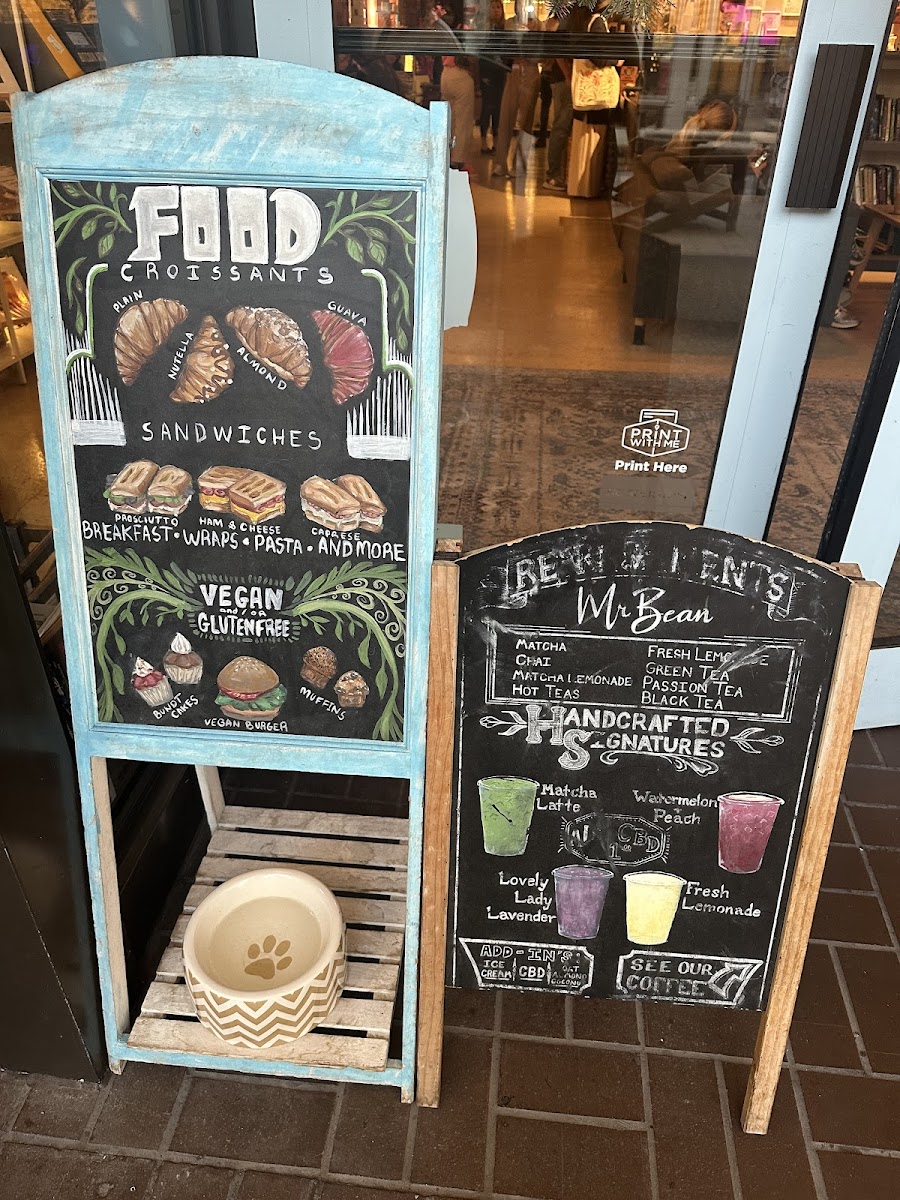 FOOD
CROISSANTS
PLAIN
NUTELLA
ALMOND
GUAVA
SANDWICHES
PROSCIUTTO
HAM & CHEESE
CAPRESE
BREAKFAST • WRAPS • PASTA • AND MORE
VEGAN
and/or
GLUTENFREE
BUNDT CAKES
VEGAN BURGER
MUFFINS
PRINT
WITH ME
Print Here
Mr Bean
MATCHA
CHAI
MATCHA LEMONADE
HOT TEAS
FRESH
GREEN TEA
PASSION TEA
BLACK TEA
HANDCRAFTED
SIGNATURES
Matcha
Latte
Watermelon
Peach
CBD
Lovely
Lady
Lavender
Fresh
Lemonade
ADD-IN'S:
ICE
CREAM
CBD
OAT
ALMOND
COCONUT
SEE OUR
COFFEE